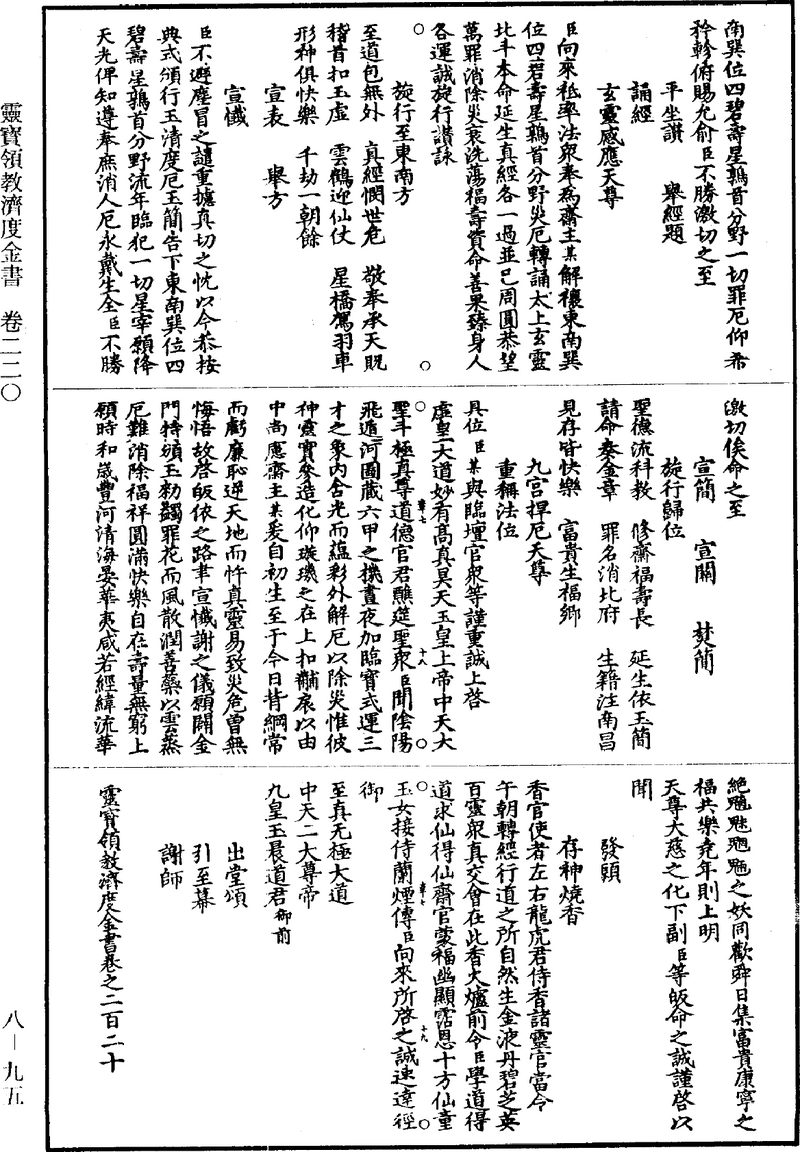 靈寶領教濟度金書　卷二二〇
八－九五
南巽位四碧壽星鶉首分野一切罪厄仰希
矜軫俯賜允俞臣不勝激切之至
平坐讃　舉經題
誦經
玄靈感應天尊
臣向來秪率法衆奉為齋主某解禳東南巽
位四碧壽星鶉首分野災厄轉誦太上玄靈
北斗本命延生真經各一過並已周圓恭望
萬罪消除災衰洗蕩福壽資命善果臻身人
各運誠旋行讃詠
旋行至東南方
至道包無外　真經憫世危　敬奉承天貺
稽首扣玉虛　雲鶴迎仙仗　星橋駕羽車
形神俱快樂　千劫一朝餘
宣表　舉方
宣懺
臣不避塵冒之譴重攄真切之忱以今恭按
典式頒行玉清度厄玉簡告下東南巽位四
碧壽星鶉首分野流年臨犯一切星宰願降
天光俾知遵奉庶消人厄永戴生全臣不勝
激切俟命之至
宣簡　宣關　焚簡
旋行歸位
聖德流科教　修齋福壽長　延生依玉簡
請命奏金章　罪名消北府　生籍注南昌
見存皆快樂　富貴生福鄉
九宮捍厄天尊
重稱法位
具位臣某與臨壇官衆等謹重誠上啓
虛皇大道妙有高真昊天玉皇上帝中天大
聖斗極真尊道德官君醮筵聖衆臣聞陰陽
飛遁河圖藏六甲之機晝夜加臨寳式運三
才之象內含光而蘊彩外解厄以除災惟彼
神靈實參造化仰璇璣之在上扣黼扆以由
中尚應齋主某爰自初生至于今日背綱常
而虧廉恥逆天地而忤真靈易致災危曾無
悔悟故啓皈依之路聿宣懺謝之儀願闢金
門特頒玉勑蠲罪花而風散潤善藥以雲蒸
厄難消除福祥圓滿快樂自在壽量無窮上
願時和歲豐河清海晏華夷咸若經緯流華
絕魑魅魍魎之妖同歡舜日集富貴康寧之
福共樂堯年則上明
天尊大慈之化下副臣等皈命之誠謹啓以
聞
發願
存神燒香
香官使者左右龍虎君侍香諸靈官當令
午朝轉經行道之所自然生金液丹碧芝英
百靈衆真交會在此香火爐前令臣學道得
道求仙得仙齋官蒙福幽顯霑恩十方仙童
玉女接侍蘭煙傳臣向來所啓之誠速達徑
御
至真无極大道
中天二大尊帝
九皇玉晨道君御前
出堂頌
引至幕
謝師
靈寶領教濟度金書卷之二百二十